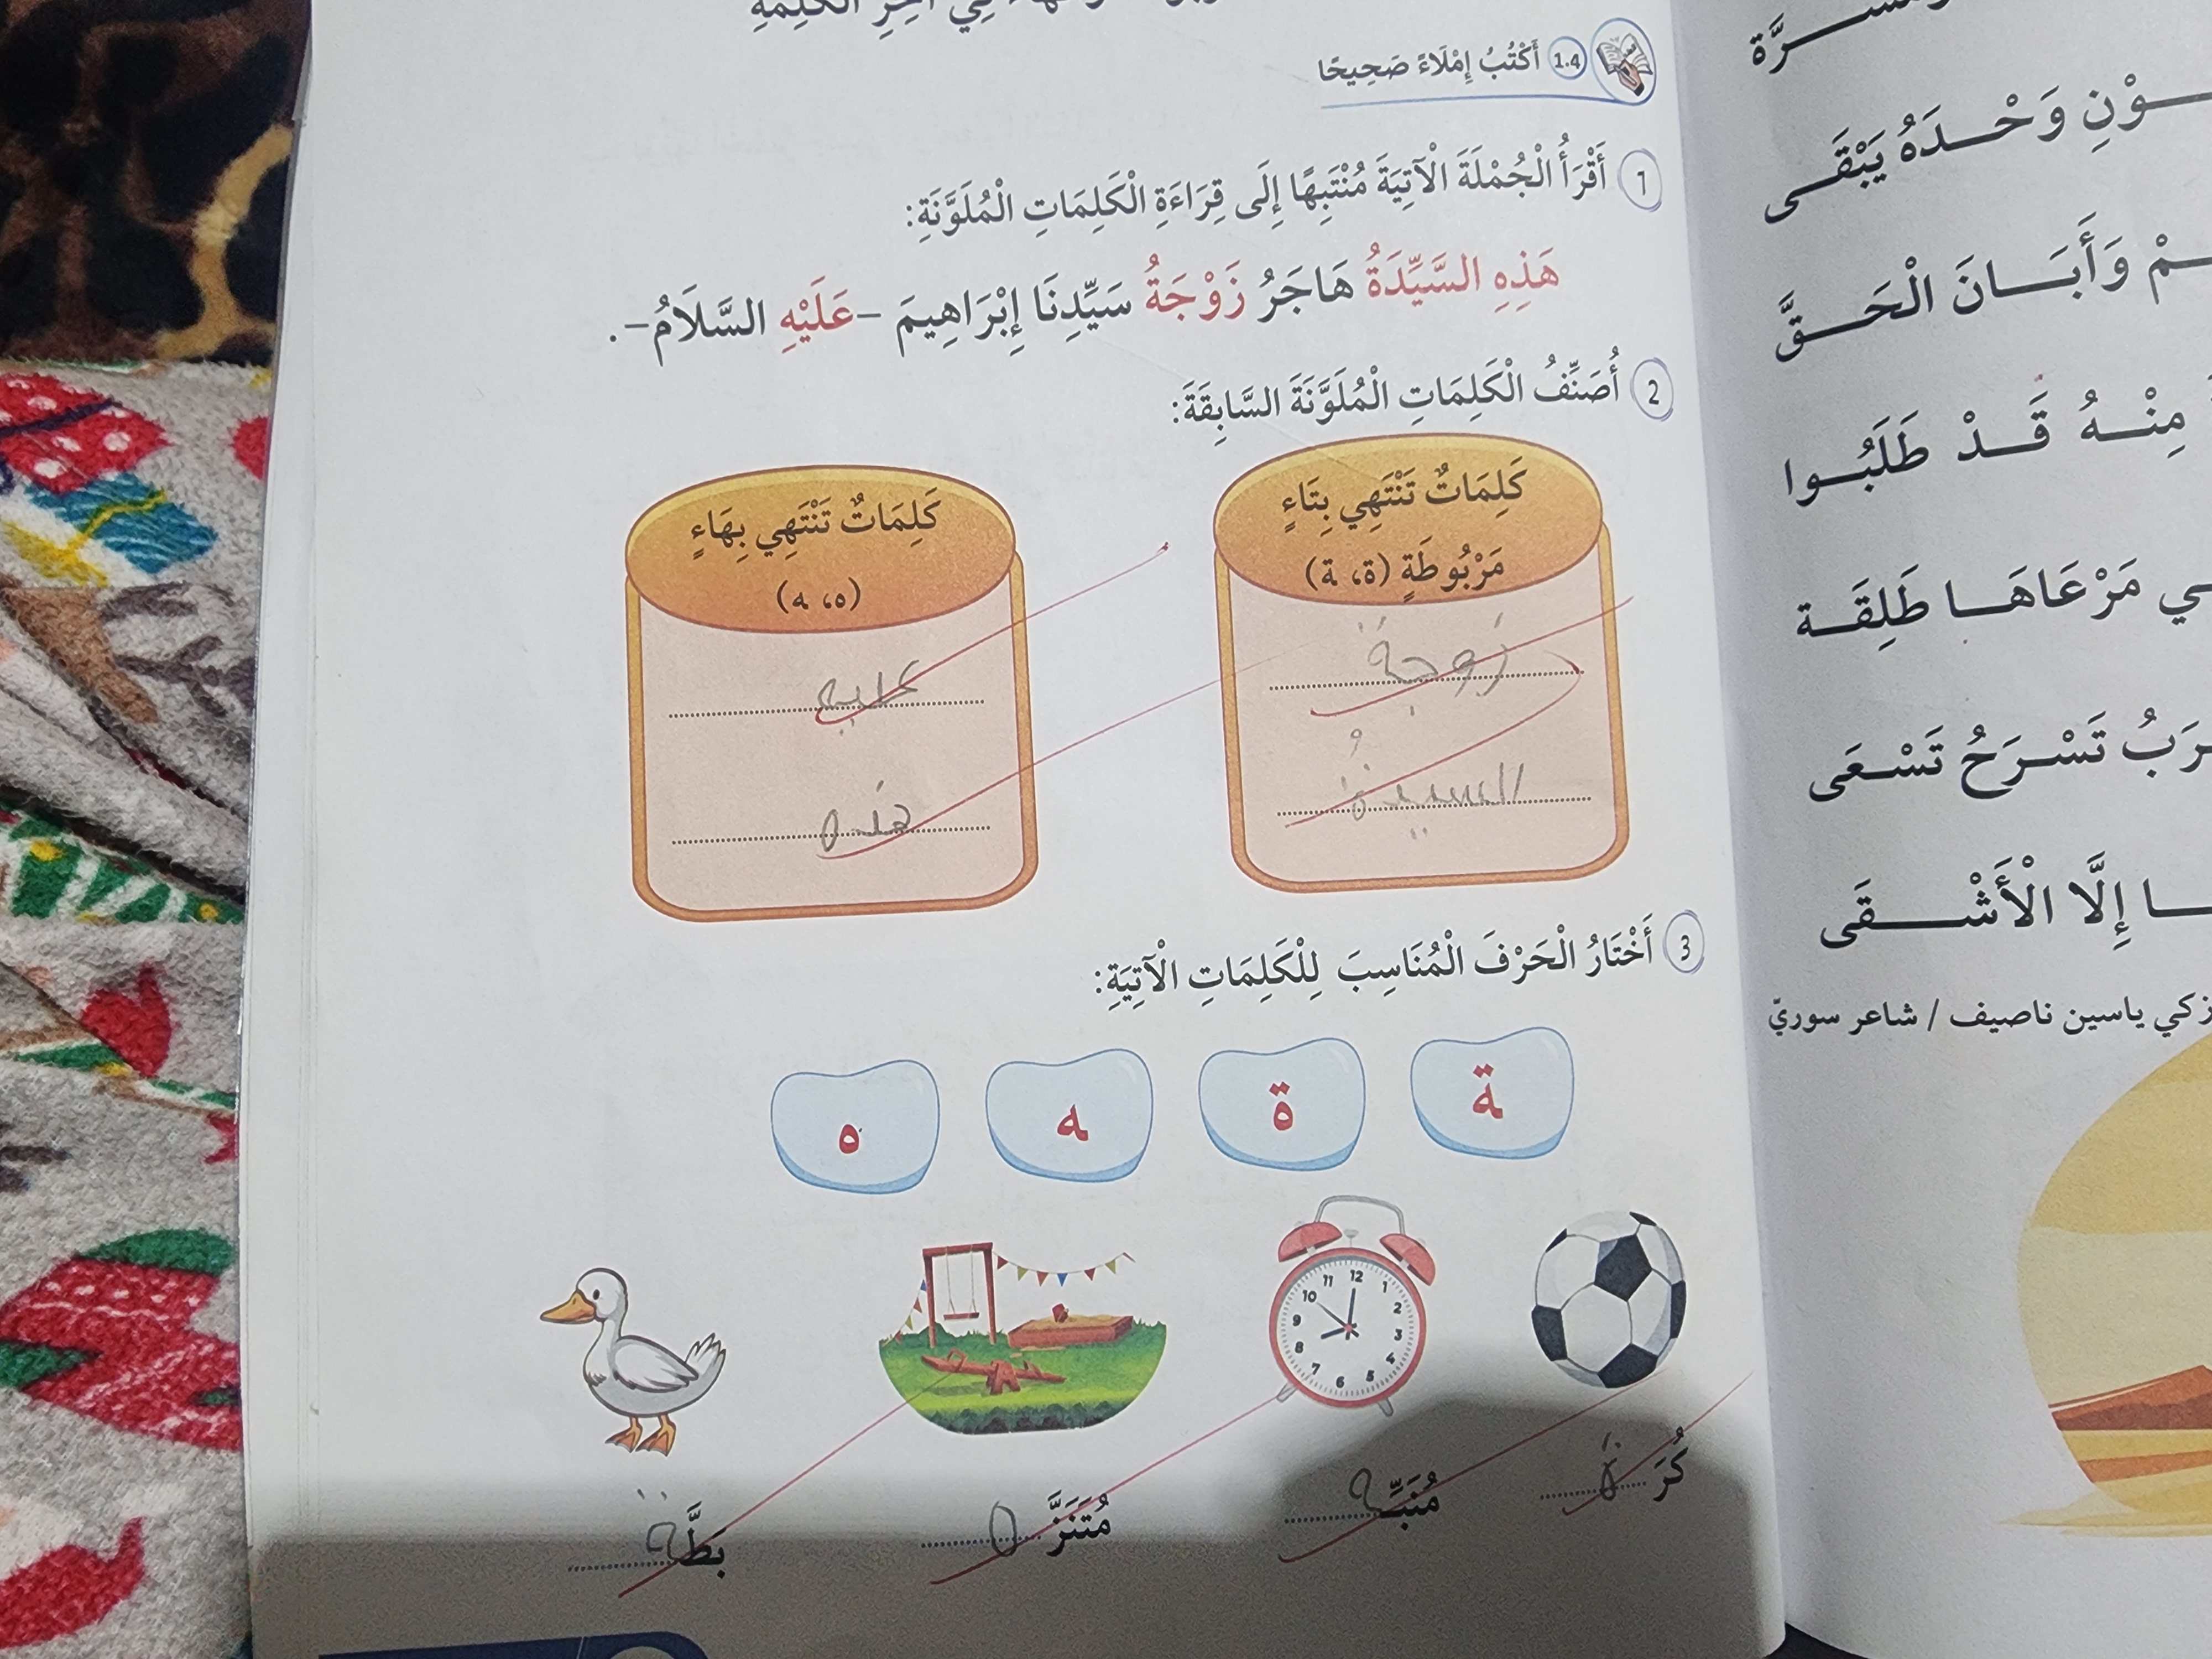 1.4 أَكْتُبُ إِمْلَاءً صَحِيحًا
1 أَقْرَأُ الْجُمْلَةَ الْآتِيَةَ مُنْتَبِهًا إِلَى قِرَاءَةِ الْكَلِمَاتِ الْمُلَوَّنَةِ:
هَذِهِ السَّيِّدَةُ هَاجَرُ زَوْجَةُ سَيِّدِنَا إِبْرَاهِيمَ –عَلَيْهِ السَّلَامُ–.
2 أُصَنِّفُ الْكَلِمَاتِ الْمُلَوَّنَةَ السَّابِقَةَ:
كَلِمَاتٌ تَنْتَهِي بِتَاءٍ
مَرْبُوطَةٍ (ة، ـة)
زوجة
السيدة
كَلِمَاتٌ تَنْتَهِي بِهَاءٍ
(ه، ـه)
عليه
هذه
3 أَخْتَارُ الْحَرْفَ الْمُنَاسِبَ لِلْكَلِمَاتِ الْآتِيَةِ:
ـة ة ـه ه
12 1 2 3 4 5 6 7 8 9 10 11
كُرَ ة مُنَبِّـ ـه مُتَنَزَّ ه بَطَّـ ـة
ـرَّة
ـوْنِ وَحْـدَهُ يَبْقَـى
ـمْ وَأَبَـانَ الْحَـقَّ
مِنْـهُ قَـدْ طَلَبُـوا
ـي مَرْعَاهَـا طَلِقَـة
ـرَبُ تَسْـرَحُ تَسْـعَى
ـا إِلَّا الْأَشْـقَى
زكي ياسين ناصيف / شاعر سوريّ